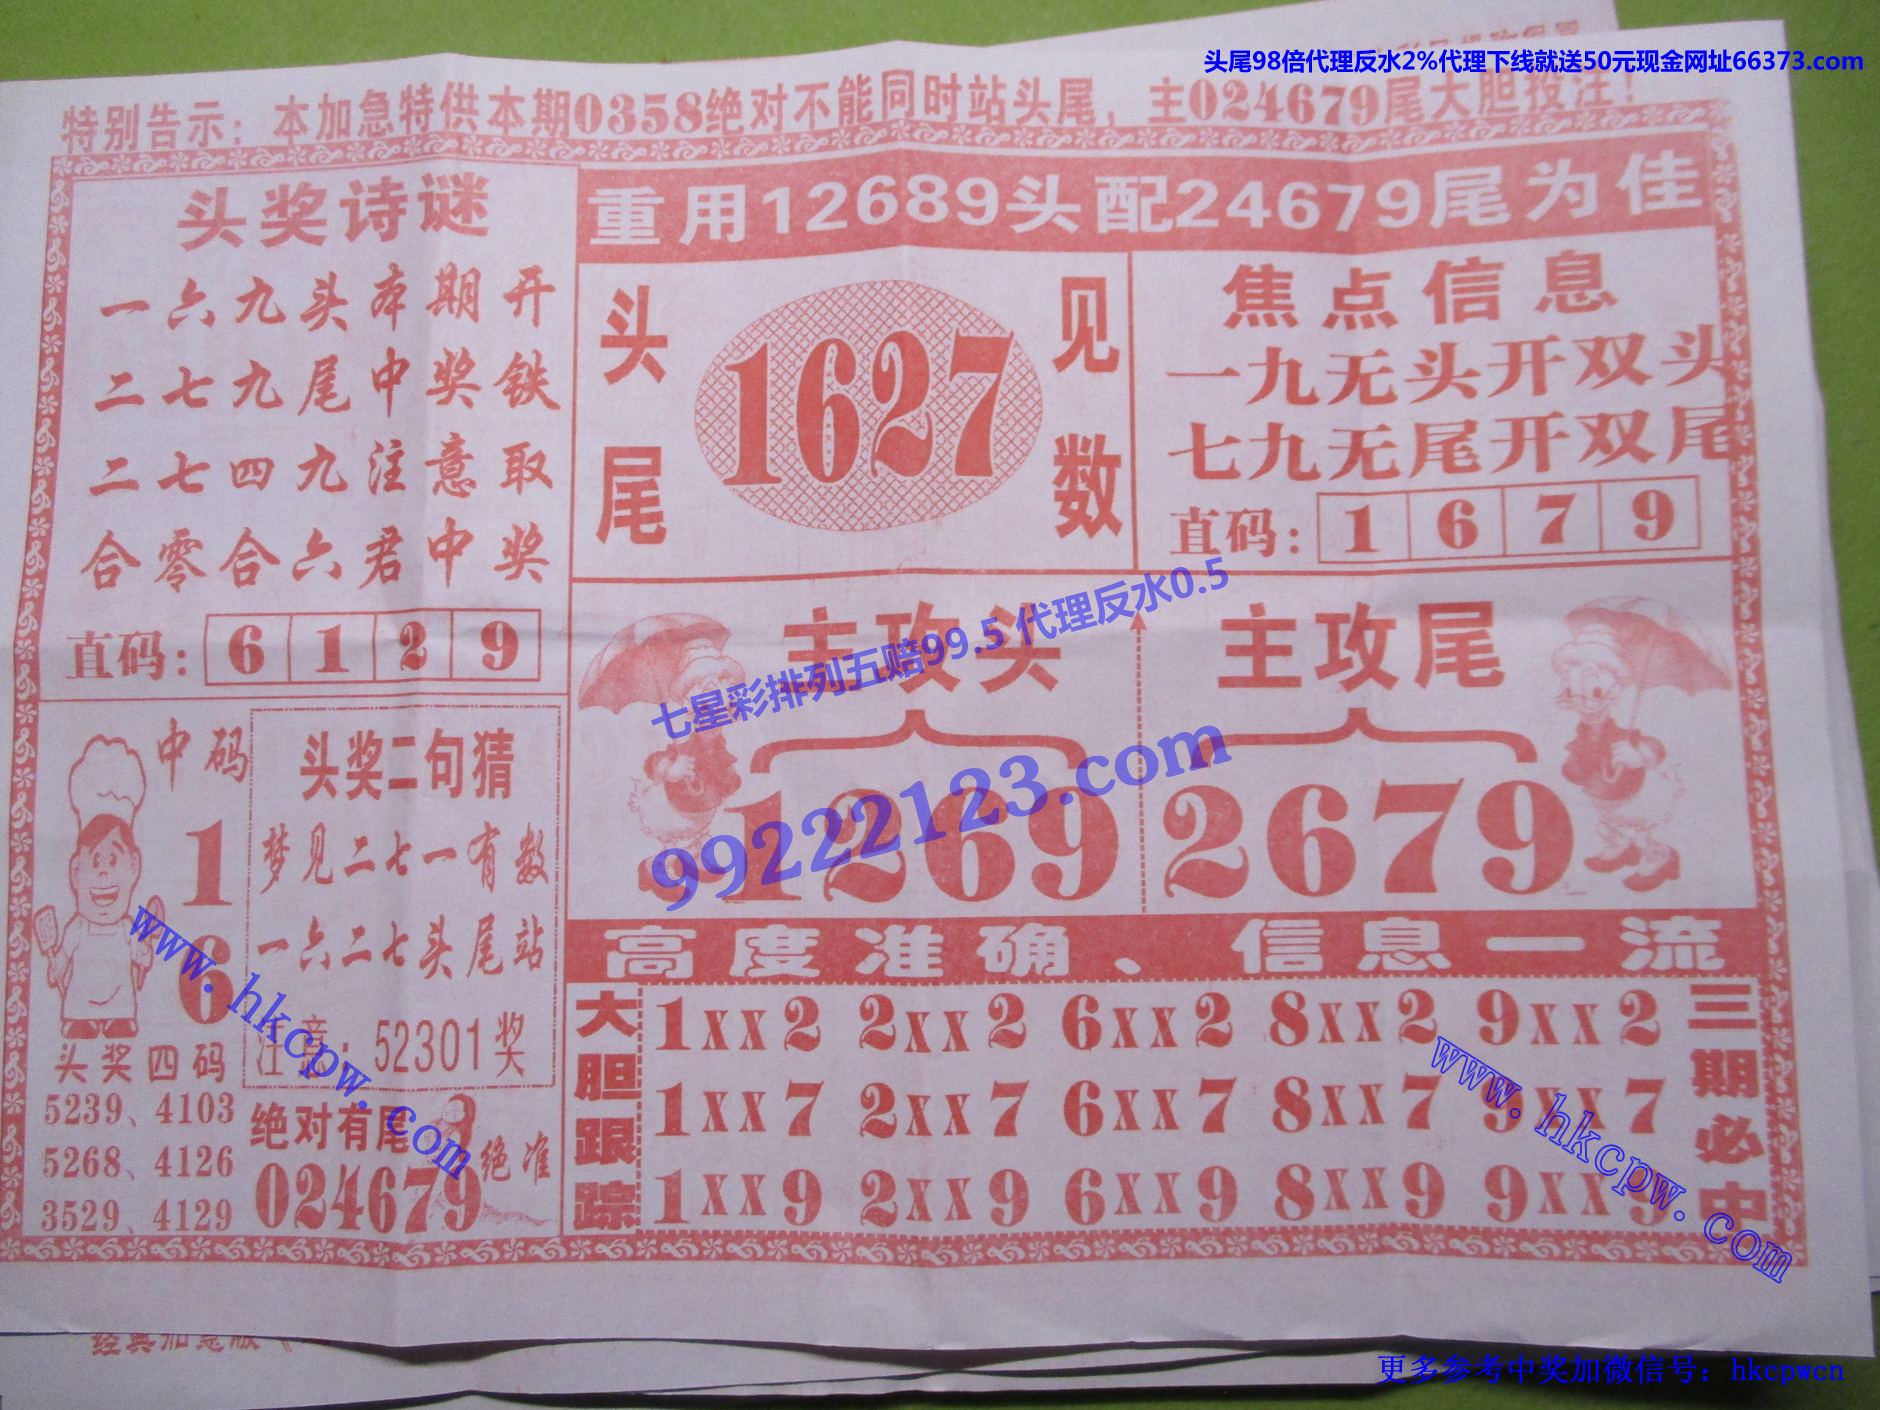 头尾98倍代理反水2%代理下线就送50元现金网址66373.com
特别告示：本加急特供本期0358绝对不能同时站头尾，主024679尾大胆投注！
头奖诗谜
一六九头本期开
二七九尾中奖铁
二七四九注意取
合零合六君中奖
直码：6 1 2 9
重用12689头配24679尾为佳
头尾
1627
见数
焦点信息
一九无头开双头
七九无尾开双尾
直码：1 6 7 9
主攻头
1269
主攻尾
2679
七星彩排列五赔99.5 代理反水0.5
99222123.com
中码
1
6
头奖四码
5239、4103
5268、4126
3529、4129
头奖二句猜
梦见二七一有数
一六二七头尾站
注意：52301奖
绝对有尾
024679
绝准
www.hkcpw.com
高度准确、信息一流
大胆跟踪
1XX2 2XX2 6XX2 8XX2 9XX2
1XX7 2XX7 6XX7 8XX7 9XX7
1XX9 2XX9 6XX9 8XX9 9XX9
三期必中
www.hkcpw.com
更多参考中奖加微信号：hkcpwcn